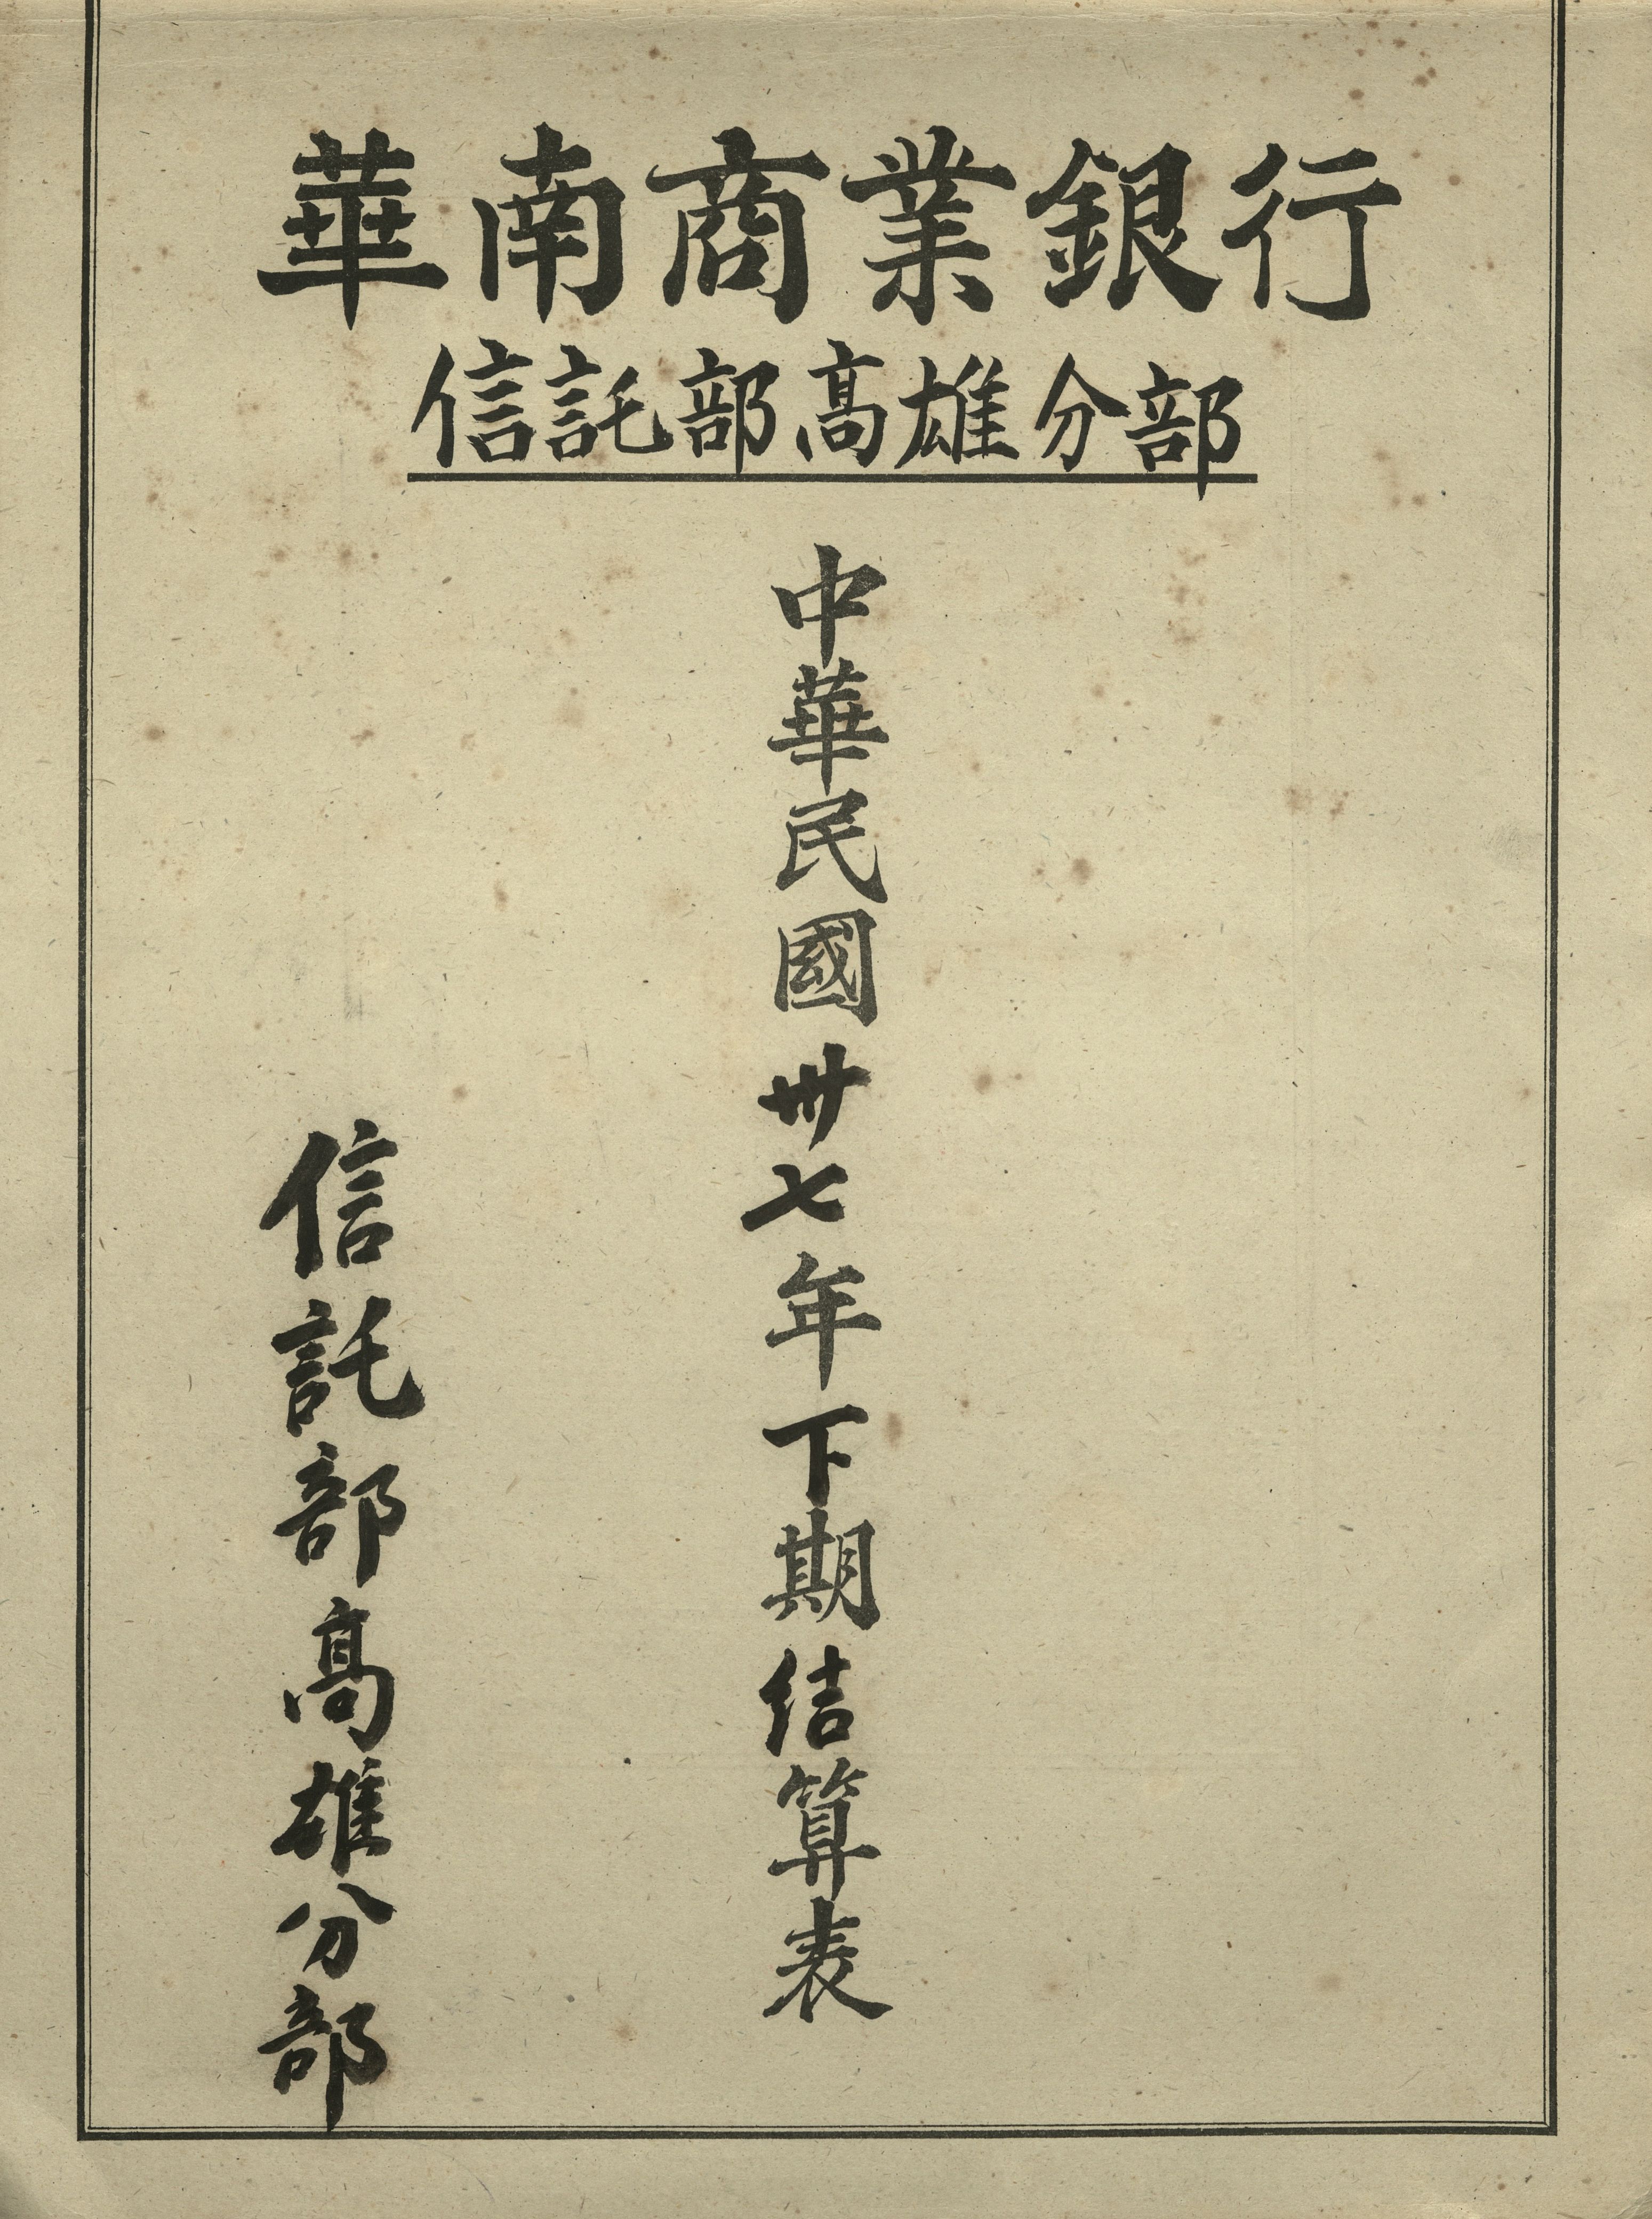 華南商業銀行
信託部高雄分部
中華民國卅七年下期结算表
信託部高雄分部